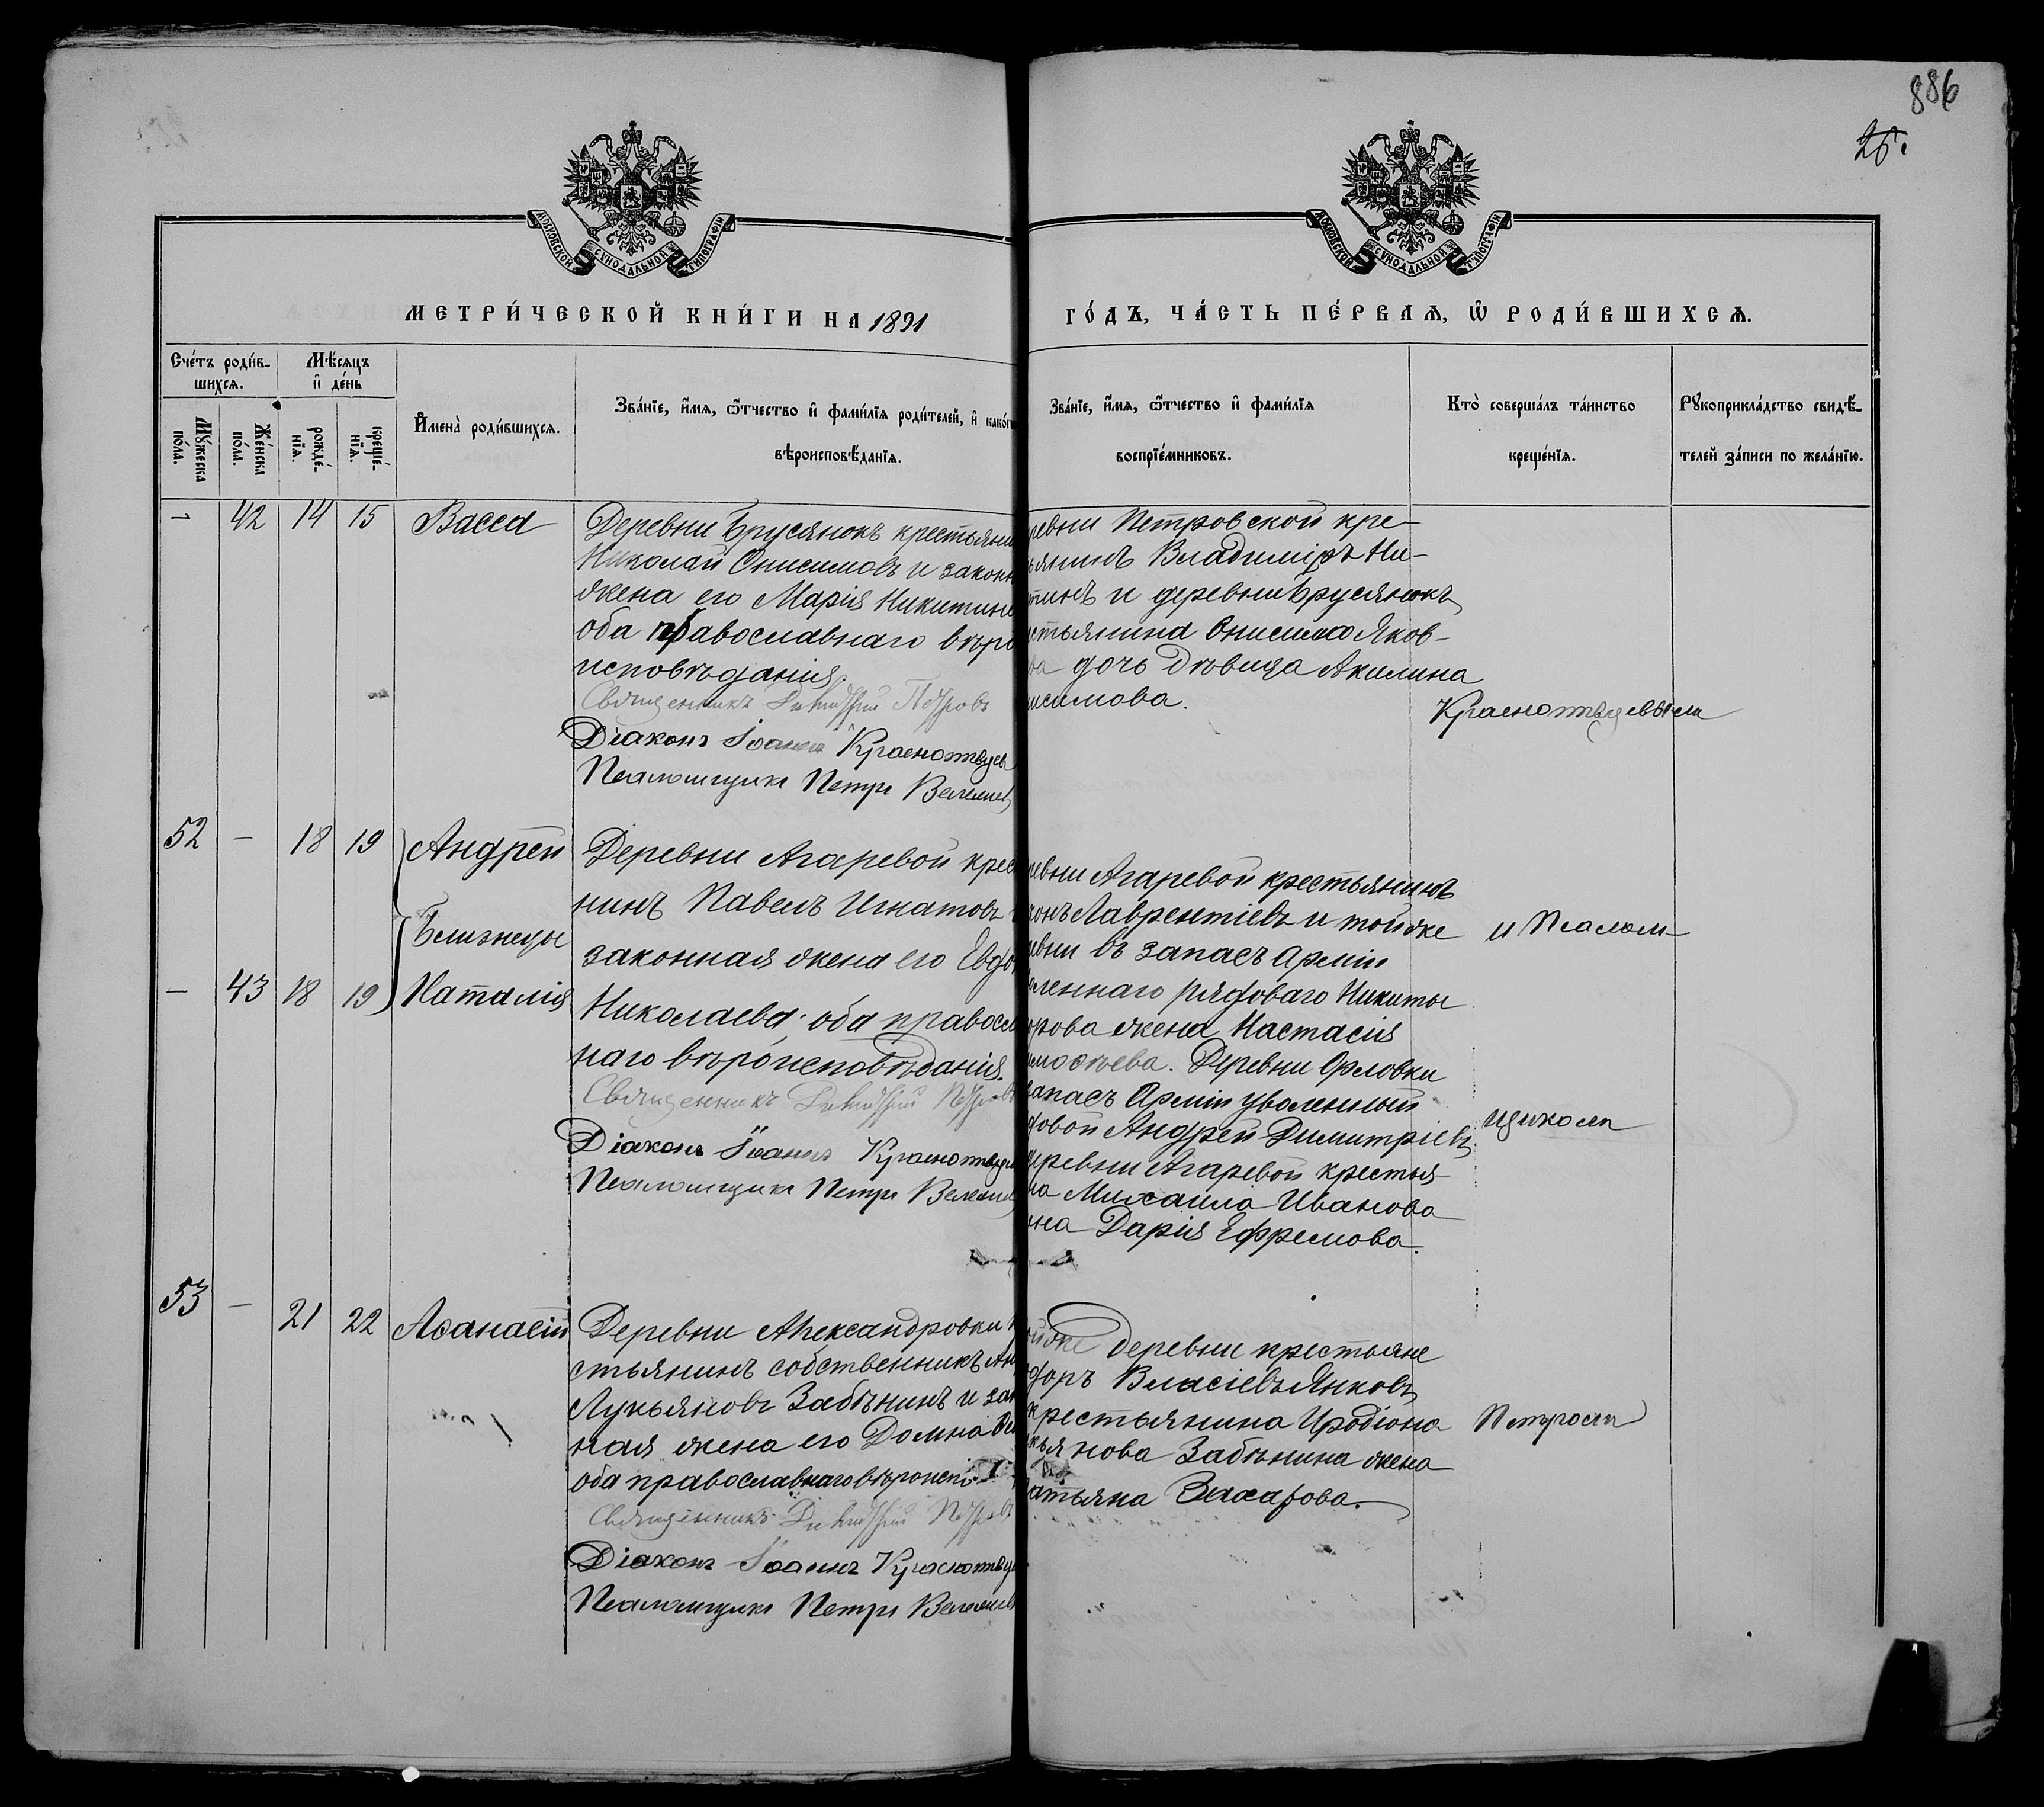 886
25.
МОСКОВСКОЙ СѴНОДАЛЬНОЙ ТИПОГРАФІИ
МОСКОВСКОЙ СѴНОДАЛЬНОЙ ТИПОГРАФІИ
МЕТРИ́ЧЕСКОЙ КНИ́ГИ НА 1891
ГО́ДЪ, ЧА́СТЬ ПЕ́РВАѦ, Ѡ҆ РОДИ́ВШИХСѦ.
Сче́тъ роди́в-
шихсѧ.
Мѣ́сѧцъ
и҆ де́нь
Мꙋ́жеска по́ла.
Же́нска по́ла.
рожде́-нїѧ.
креще́-нїѧ.
И҆мена̀ роди́вшихсѧ.
Зва́нїе, и҆́мѧ, ѻ҆́тчество и҆ фами́лїѧ роди́телей, и҆ како́гѡ
вѣроисповѣ́данїѧ.
Зва́нїе, и҆́мѧ, ѻ҆́тчество и҆ фами́лїѧ
воспрїе́мниковъ.
Кто̀ соверша́лъ та́инство
креще́нїѧ.
Рꙋкоприкла́дство свидѣ́-
телей за́писи по жела́нїю.
– 42 14 15 Васса
Деревни Брусянокъ крестьяни
Николай Онисимовъ и законн
жена его Марія Никитина
оба православнаго вѣро
исповѣданія.
Священникъ Димитрій Петровъ
Діаконъ Іоаннъ Краснотвуцев
Псаломщикъ Петръ
ревни Петровской кре-
ьянинъ Владиміръ Ни-
тинъ и деревни Брусянокъ
стьянина Онисима Яков-
ва дочь дѣвица Акилина
исимова.
52 – 18 19 Андрей
Близнецы
– 43 18 19 Наталія
Деревни Агаревой крес
нинъ Павелъ Игнатовъ и
законная жена его Евдо
Николаева; оба правосл
наго вѣроисповѣданія.
Священникъ Димитрій Петровъ
Діаконъ Іоаннъ
Псаломщикъ Петръ
ревни Агаревой крестьянинъ
онъ Лаврентіевъ и тойже
ревни въ запасъ Арміи
оленнаго рядоваго Никиты
орова жена Настасія
моѳѣева. Деревни Орловки
запасъ Арміи уволенный
довой Андрей Димитріевъ
деревни Агаревой крестья-
на Михаила Иванова
на Дарія Ефремова.
и Псалом-
щикомъ
53 – 21 22 Аѳанасій
Деревни Александровки к
стьянинъ собственникъ Ан
Лукьяновъ Забѣнинъ и зак
ная жена его Домна
оба православнаго вѣроиспо
Священникъ Димитрій Петровъ
Діаконъ Іоаннъ
Псаломщикъ Петръ
ойже деревни крестьяне
доръ Власіевъ Янковъ
крестьянина Иродіона
кьянова Забѣнина жена
атьяна Захарова.
Петромъ